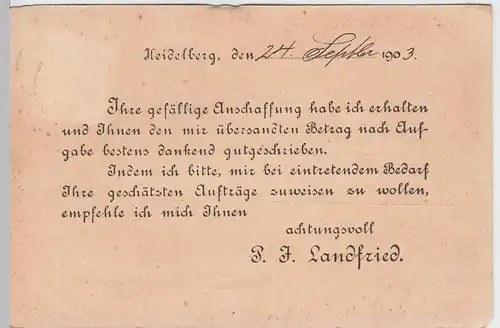 Heidelberg, den 24. Septbr 1903.
Ihre gefällige Anschaffung habe ich erhalten
und Ihnen den mir übersandten Betrag nach Auf-
gabe bestens dankend gutgeschrieben.
Indem ich bitte, mir bei eintretendem Bedarf
Ihre geschätzten Aufträge zuweisen zu wollen,
empfehle ich mich Ihnen
achtungsvoll
P. J. Landfried.